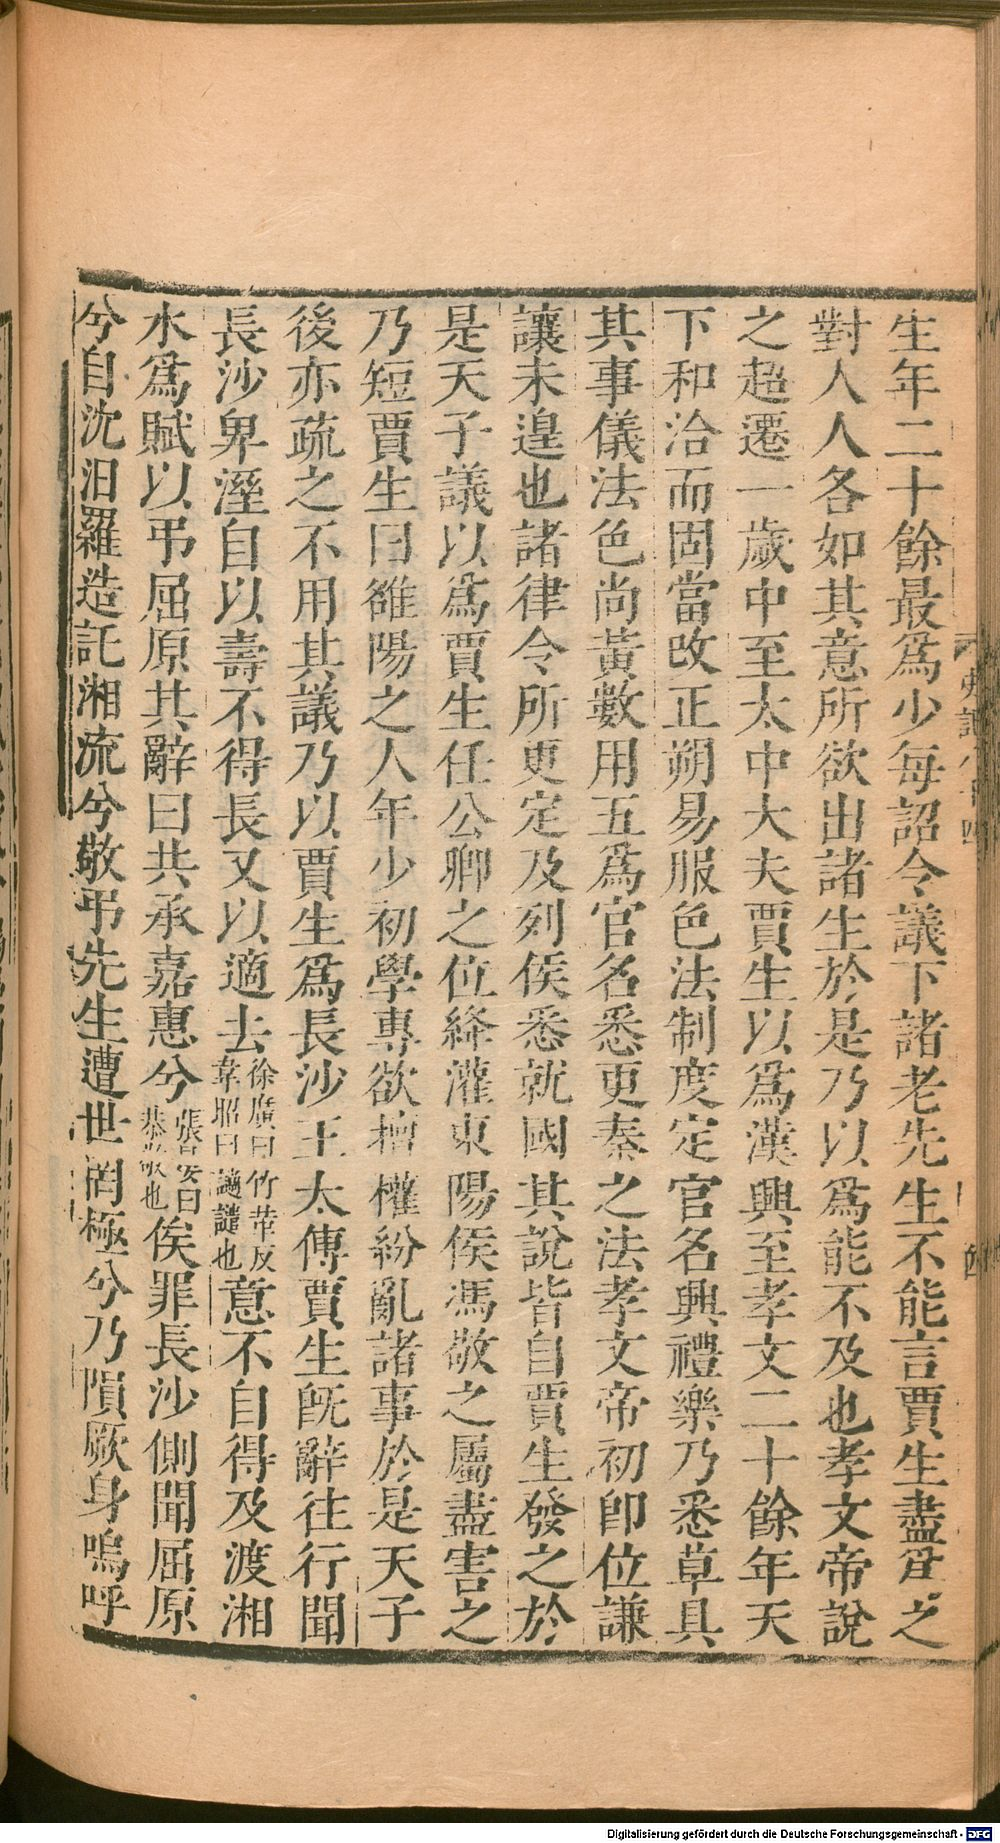 生年二十餘最爲少每詔令議下諸老先生不能言賈生盡爲之
對人人各如其意所欲出諸生於是乃以爲能不及也孝文帝說
之超遷一歲中至太中大夫賈生以爲漢興至孝文二十餘年天
下和洽而固當改正朔易服色法制度定官名興禮樂乃悉草具
其事儀法色尚黃數用五爲官名悉更秦之法孝文帝初卽位謙
讓未遑也諸律令所更定及列侯悉就國其說皆自賈生發之於
是天子議以爲賈生任公卿之位絳灌東陽侯馮敬之屬盡害之
乃短賈生曰雒陽之人年少初學專欲擅權紛亂諸事於是天子
後亦疏之不用其議乃以賈生爲長沙王太傅賈生旣辭往行聞
長沙卑溼自以壽不得長又以適去徐廣曰竹革反韋昭曰讁譴也意不自得及渡湘
水爲賦以弔屈原其辭曰共承嘉惠兮張晏曰恭敬也俟罪長沙側聞屈原
兮自沈汨羅造託湘流兮敬弔先生遭世罔極兮乃隕厥身嗚呼
史記八十四
四
Digitalisierung gefördert durch die Deutsche Forschungsgemeinschaft - DFG